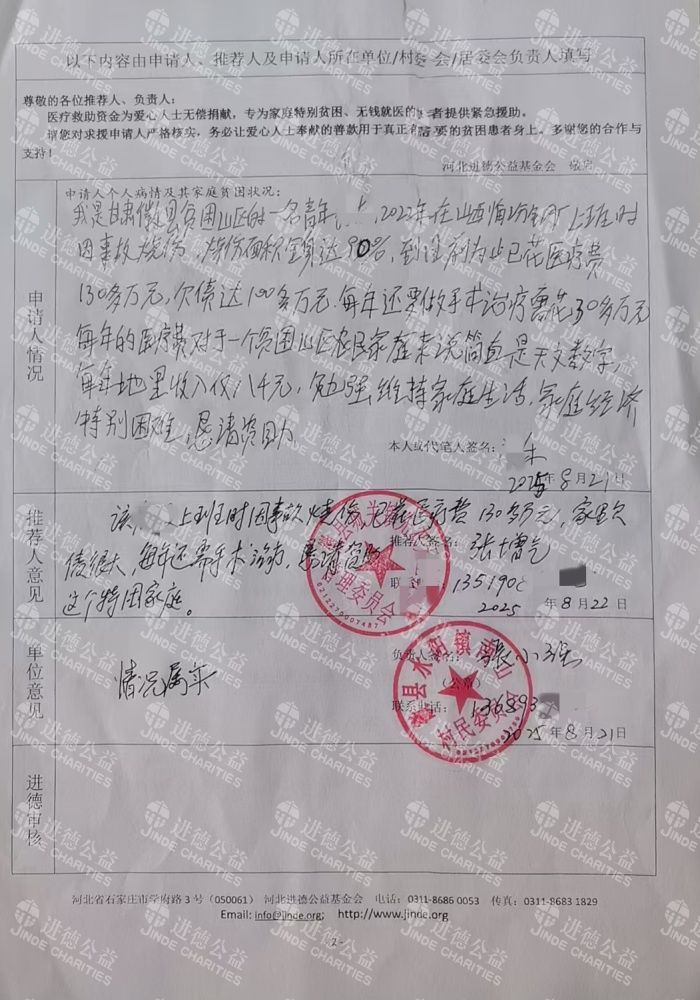 以下内容由申请人、推荐人及申请人所在单位/村委会/居委会负责人填写
尊敬的各位推荐人、负责人：
医疗救助资金为爱心人士无偿捐献，专为家庭特别贫困、无钱就医的患者提供紧急援助。
请您对求援申请人严格核实，务必让爱心人士奉献的善款用于真正有需要的贫困患者身上。多谢您的合作与
支持！
河北进德公益基金会 敬启
申请人情况
申请人个人病情及其家庭贫困状况：
我是甘肃徽县贫困山区的一名青年，2022年在山西临汾 上班时
因事故烧伤，烧伤面积 达90%，到目前为止已花医疗费
130多万元，欠债达100多万元，每年还要做手术治疗需花30多万元
每年的医疗费对于一个贫困山区农民家庭来说简直是天文数字，
每年地里收入仅八千元，勉强维持家庭生活，家庭经济
特别困难，恳请资助
本人或代笔人签名： 朱
2025年8月21日
推荐人意见
该 上班时因事故烧伤，已花医疗费130多万元，家里欠
债很大，每年还需手术治疗，恳请资助
这个特困家庭。
推荐人签名：
联 135190
2025年8月22日
管理委员会
6212270007487
单位意见
情况属实
负责人签名： 张小强
（公章）
联系电话：136893
2025年8月21日
县 镇 村民委员会
进德审核
河北省石家庄市学府路3号（050061） 河北进德公益基金会 电话：0311-8686 0053 传真：0311-8683 1829
Email: info@jinde.org; http://www.jinde.org
2-
进德公益
JINDE CHARITIES